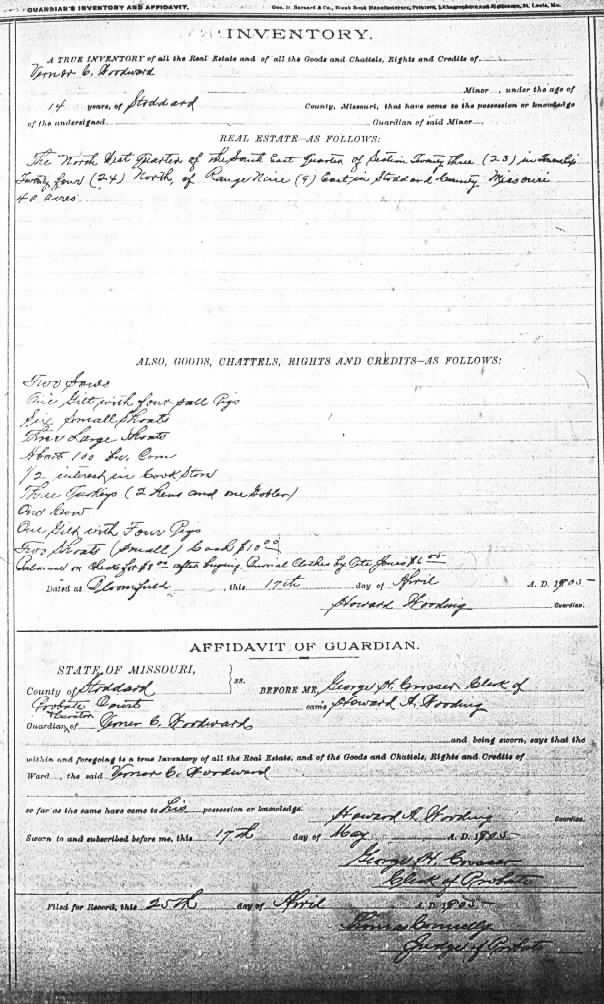 GUARDIAN'S INVENTORY AND AFFIDAVIT.
Geo. D. Barnard & Co., Blank Book Manufacturers, Printers, Lithographers and Stationers, St. Louis, Mo.
INVENTORY.
A TRUE INVENTORY of all the Real Estate and of all the Goods and Chattels, Rights and Credits of
Verner C. Woodward
Minor, under the age of
14 years, of Stoddard County, Missouri, that have come to the possession or knowledge
of the undersigned Guardian of said Minor
REAL ESTATE—AS FOLLOWS:
The North West Quarter of the South East Quarter of Section Twenty three (23) in Township
Twenty four (24) North, of Range Nine (9) East, in Stoddard County Missouri
40 acres
ALSO, GOODS, CHATTELS, RIGHTS AND CREDITS—AS FOLLOWS:
Two Sows
One Gilt with four small Pigs
Six Small Shoats
Large Shoats
About 100 Bu. Corn
1/2 interest in Cook Stove
Three Turkeys (2 Hens and one Gobler)
One Cow
One Gilt with Four Pigs
Two Shoats (small) Cash $10.00
on for $8.00 after buying Burial Clothes by Pete Jones $6.00
Dated at Bloomfield, this 17th day of April A. D. 1905
Howard Wooding Guardian.
AFFIDAVIT OF GUARDIAN.
STATE OF MISSOURI,
County of Stoddard } ss. BEFORE ME, George H. Crosser Clerk of
Probate Court came Howard A. Wooding
Curator
Guardian of Verner C. Woodward
and being sworn, says that the
within and foregoing is a true Inventory of all the Real Estate, and of the Goods and Chattels, Rights and Credits of
Ward, the said Verner C. Woodward
so far as the same have come to his possession or knowledge. Howard A. Wooding Guardian.
Sworn to and subscribed before me, this 17th day of May A. D. 1905
George H. Crosser
Clerk of Probate
Filed for Record, this 25th day of April A. D. 1905
Thomas Connelly
Judge of Probate